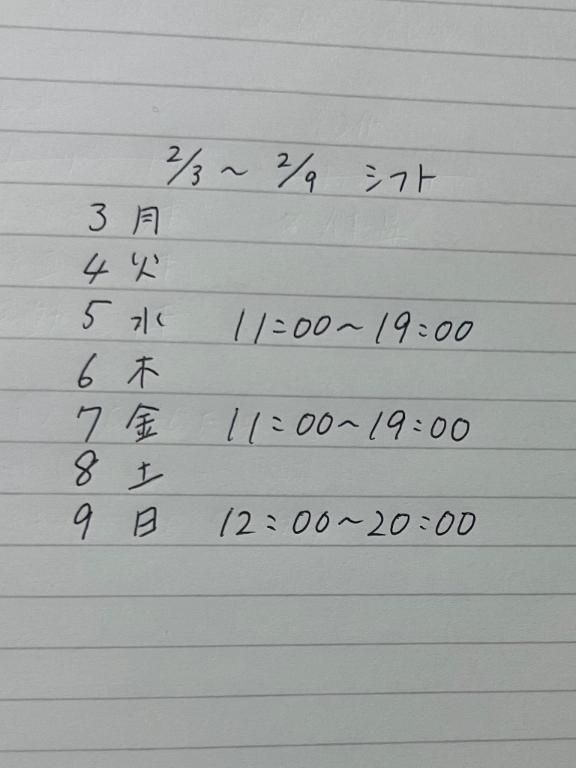 2/3～2/9 シフト
3 月
4 火
5 水 11:00～19:00
6 木
7 金 11:00～19:00
8 土
9 日 12:00～20:00